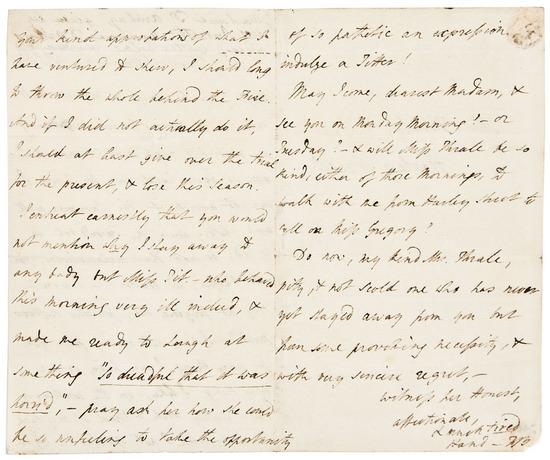 your kind approbations of what I
have ventured to shew, I should long
to throw the whole behind the Fire.
And if I did not actually do it,
I should at least give over the trial
for the present, & lose this season.
I entreat earnestly that you would
not mention why I stay away to
any body but Miss Tit. – who behaved
this morning very ill indeed, &
made me ready to Laugh at
something "so dreadful that it was
horrid", – pray ask her how she could
be so unfeeling to take the opportunity
of so pathetic an expression
indulge a Titter!
May I come, dearest Madam, &
see you on Monday Morning? – or
Tuesday? – & will Miss Thrale be so
kind, either of those Mornings, to
walk with me from Harley Street to
call on Miss Gregory?
Do now, my kind Mrs. Thrale,
pity, & not scold one who has never
yet stayed away from you but
from some provoking necessity, &
with very sincere regret, –
witness her Honest,
affectionate,
& much tired
Hand – FB